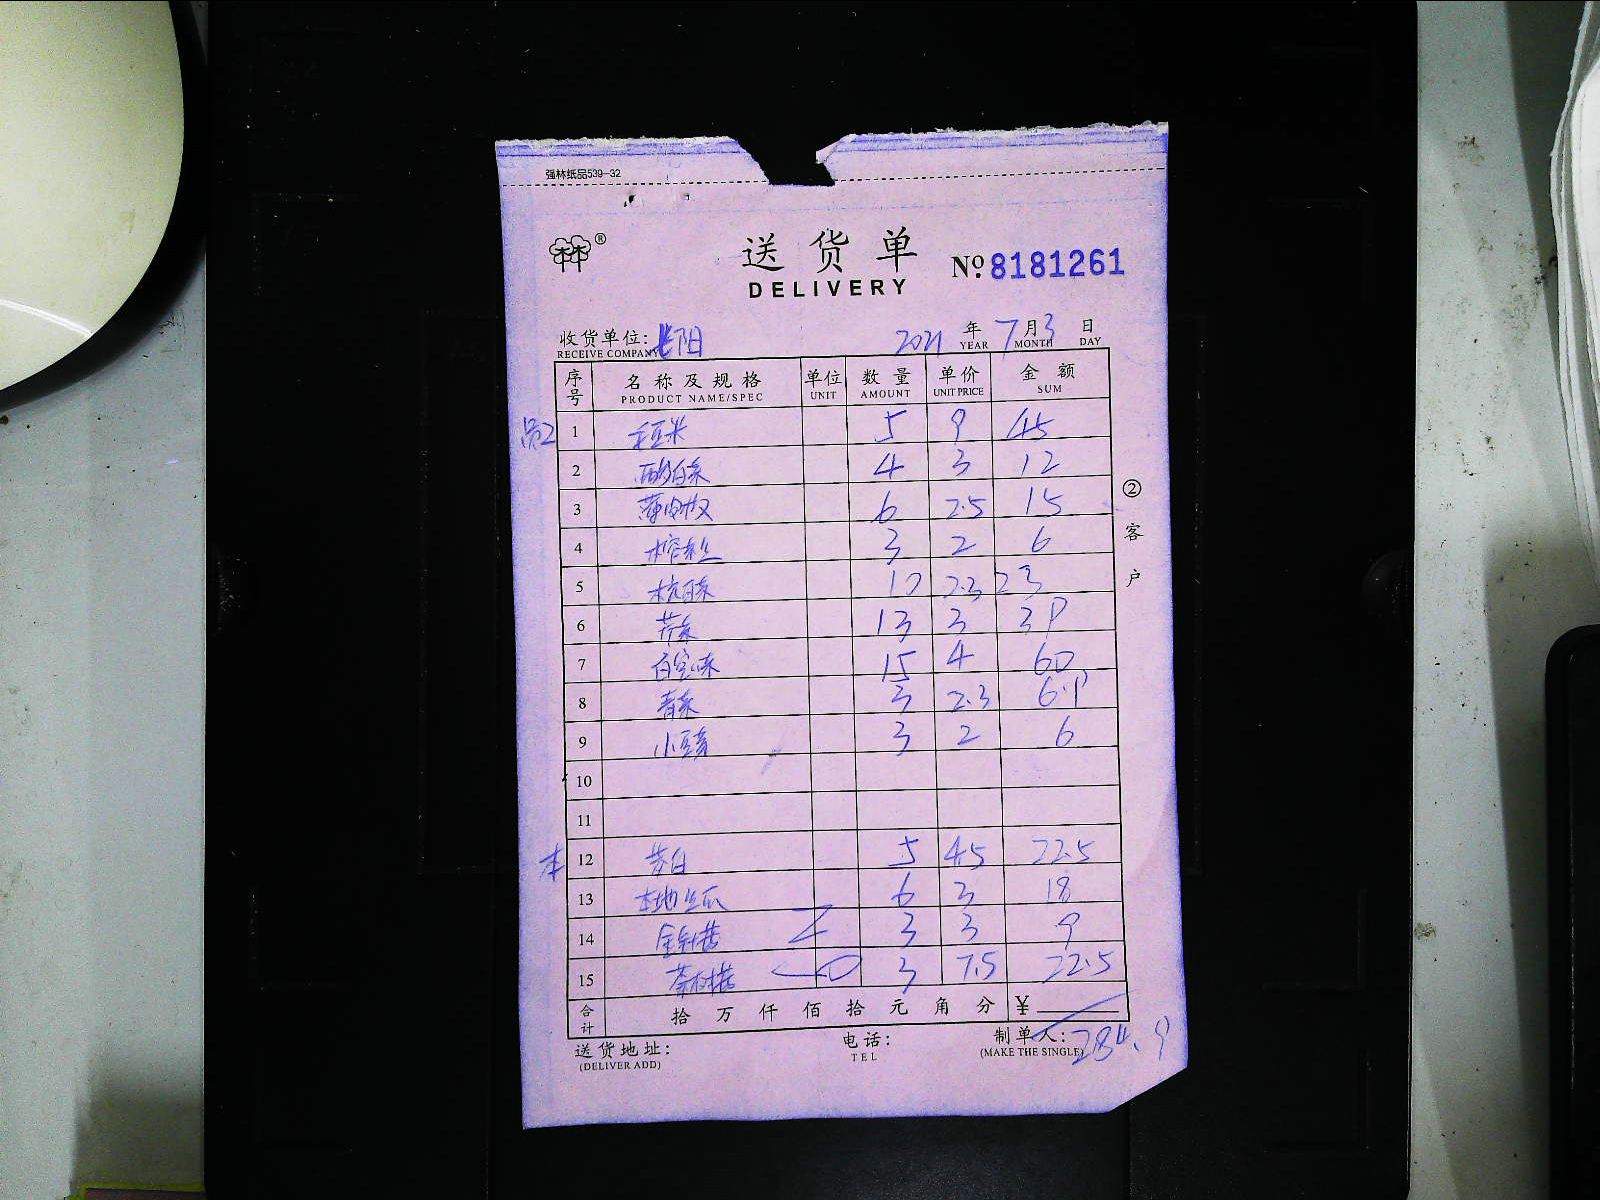 强林纸品539-32
林®
送货单
DELIVERY
№8181261
收货单位: 阳 2021 年 7 月 3 日
RECEIVE COMPANY YEAR MONTH DAY
序号 名称及规格 单位 数量 单价 金额
PRODUCT NAME/SPEC UNIT AMOUNT UNIT PRICE SUM
员工 1 毛豆米 5 9 45
2 酸白菜 4 3 12
3 薄肉 6 2.5 15
4 榨菜丝 3 2 6
5 杭白菜 10 2.3 23
6 芹菜 13 3 39
7 15 4 60
8 青菜 3 2.3 6.9
9 小豆芽 3 2 6
10
11
本 12 茭白 5 4.5 22.5
13 本地丝瓜 6 3 18
14 金针菇 3 3 9
15 茶树菇 3 7.5 22.5
合计 拾万仟佰拾元角分 ¥
284.9
送货地址: 电话: 制单人:
(DELIVER ADD) TEL (MAKE THE SINGLE)
②客户